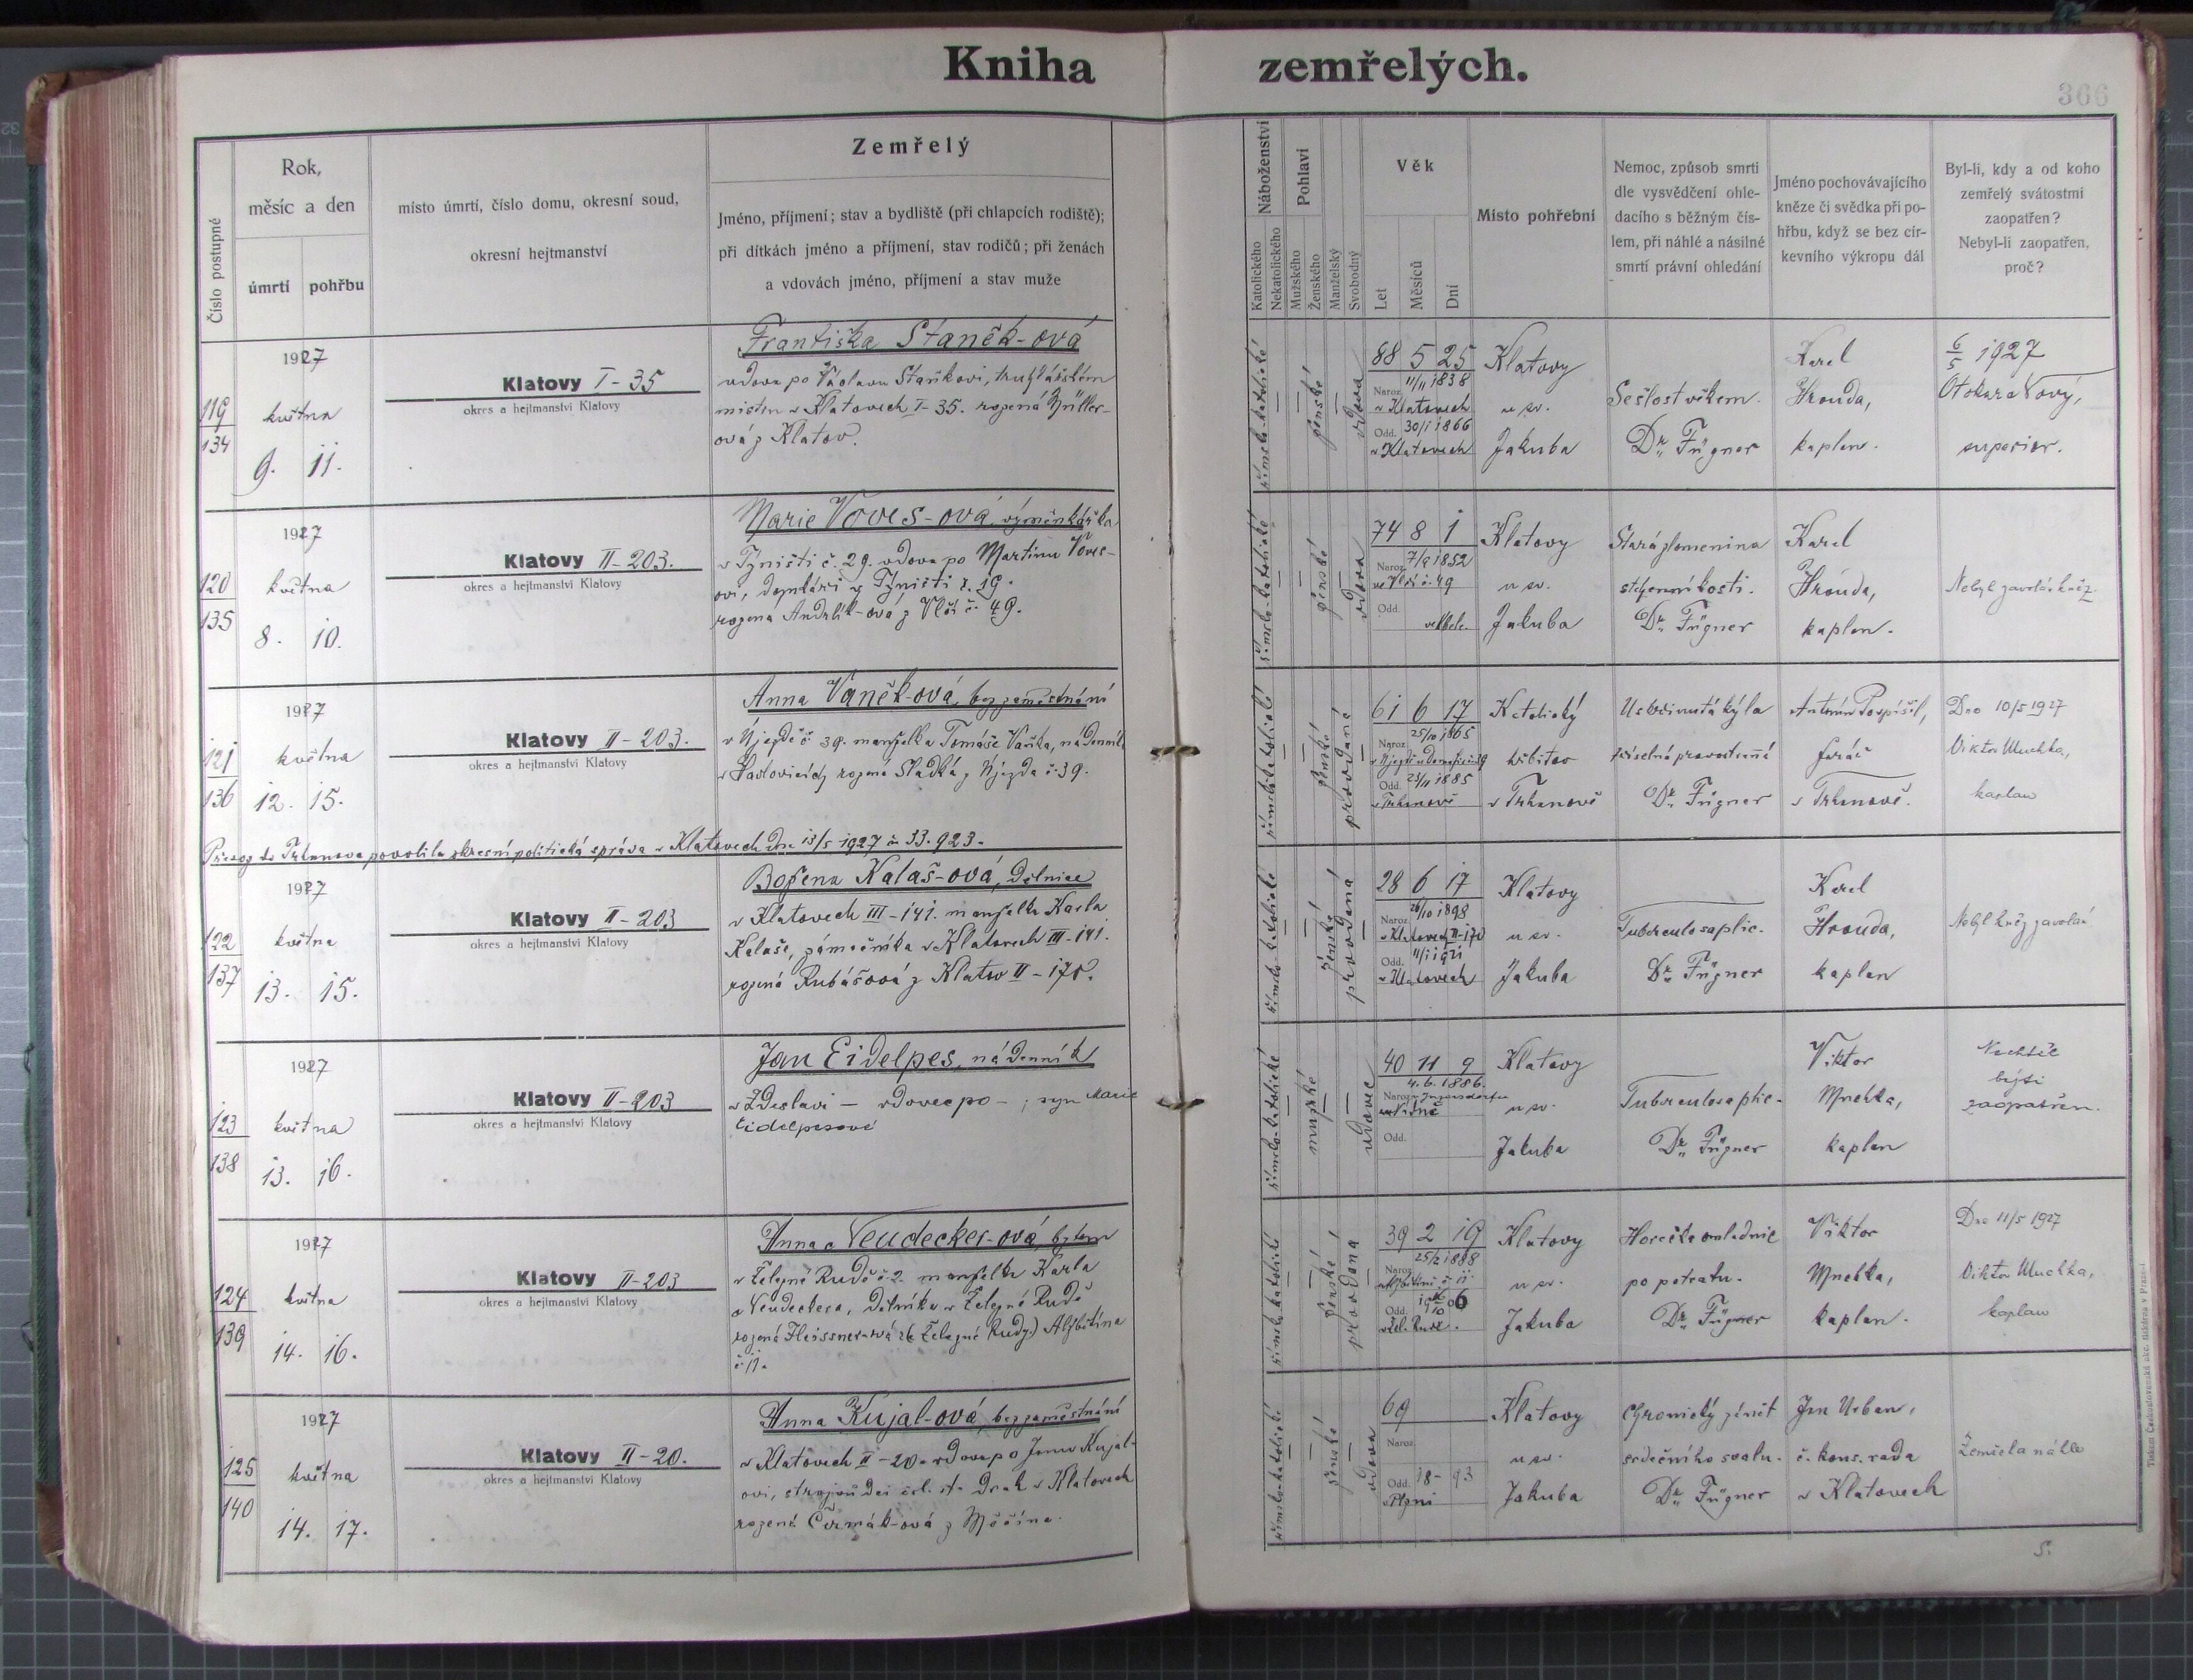 Kniha zemřelých.
366
Číslo postupné
Rok,
měsíc a den
úmrtí
pohřbu
místo úmrtí, číslo domu, okresní soud,
okresní hejtmanství
Zemřelý
Jméno, příjmení; stav a bydliště (při chlapcích rodiště);
při dítkách jméno a příjmení, stav rodičů; při ženách
a vdovách jméno, příjmení a stav muže
Náboženství
Katolického
Nekatolického
Pohlaví
Mužského
Ženského
Manželský
Svobodný
Věk
Let
Měsíců
Dní
Místo pohřební
Nemoc, způsob smrti
dle vysvědčení ohle-
dacího s běžným čís-
lem, při náhlé a násilné
smrtí právní ohledání
Jméno pochovávajícího
kněze či svědka při po-
hřbu, když se bez cír-
kevního výkropu dál
Byl-li, kdy a od koho
zemřelý svátostmi
zaopatřen?
Nebyl-li zaopatřen,
proč?
1927
119
134
května
9. 11.
Klatovy I-35
okres a hejtmanství Klatovy
Františka Staněk-ová
vdova po Václavu Staňkovi, truhlářském
mistru v Klatovech I-35. rozená Müller-
ová z Klatov.
římsko-katolické
ženské
vdova
88 5 25
Naroz. 11/11 1838
v Klatovech
Odd. 30/1 1866
v Klatovech
Klatovy
u sv.
Jakuba
Sešlost věkem.
Dr. Fügner
Karel
Hrouda,
kaplan.
6/5 1927
Otokar Nový,
superior.
1927
120
135
května
8. 10.
Klatovy II-203.
okres a hejtmanství Klatovy
Marie Voves-ová, výměnkářka
v Týništi č. 29. vdova po Martinu Voves-
ovi, domkáři v Týništi č. 19.
rozená Andrlík-ová z Vlčí č. 49.
římsko-katolické
ženské
vdova
74 8 1
Naroz. 7/9 1852
ve Vlčí č. 49
Odd.
Klatovy
u sv.
Jakuba
Stará zlomenina
stehenní kosti.
Dr. Fügner
Karel
Hrouda,
kaplan.
Nebyl zavolán kněz
1927
121
136
května
12. 15.
Klatovy II-203.
okres a hejtmanství Klatovy
Anna Vaněk-ová, bez zaměstnání
v Újezdě č. 39. manželka Tomáše Vaňka, nádenníka
v Pavlovicích, rozená Sladká z Újezda č. 39.
římsko-katolické
ženské
provdané
61 6 17
Naroz. 25/10 1865
Odd. 23/11 1885
v Trhanově
Katolický
hřbitov
v Trhanově
Uskřinutá kýla
tříselná pravostranná
Dr. Fügner
Antonín Pospíšil,
farář
v Trhanově.
Dne 10/5 1927
Viktor Muchka,
kaplan
Převoz do Trhanova povolila okresní politická správa v Klatovech dne 13/5 1927 č. 33.923.
1927
122
137
května
13. 15.
Klatovy II-203
okres a hejtmanství Klatovy
Božena Kalaš-ová, dělnice
v Klatovech III-141. manželka Karla
Kalaše, zámečníka v Klatovech III-141.
rozená Rubášová z Klatov II-170.
římsko-katolické
ženské
provdaná
28 6 17
Naroz. 26/10 1898
v Klatovech II-170
Odd. 11/1 1921
v Klatovech
Klatovy
u sv.
Jakuba
Tuberculosa plic.
Dr. Fügner
Karel
Hrouda,
kaplan
Nebyl kněz zavolán
1927
123
138
května
13. 16.
Klatovy II-203
okres a hejtmanství Klatovy
Jan Eidelpes, nádenník
v Zdeslavi – vdovec po – ; syn Marie
Eidelpesové
římsko-katolické
mužské
vdovec
40 11 9
4. 6. 1886.
Naroz.
Odd.
Klatovy
u sv.
Jakuba
Tuberculosa plic.
Dr. Fügner
Viktor
Muchka,
kaplan
Nechtěl
býti
zaopatřen.
1927
124
139
května
14. 16.
Klatovy II-203
okres a hejtmanství Klatovy
Anna Neudecker-ová, bytem
v Železné Rudě č. 2. manželka Karla
Neudeckera, dělníka v Železné Rudě
rozená Fleissner-ová z (Železné Rudy) Alžbětina
č. 11.
římsko-katolické
ženské
provdaná
39 2 19
Naroz. 25/2 1888
Odd.
v Žel. Rudě.
Klatovy
u sv.
Jakuba
Horečka omladnic
po potratu.
Dr. Fügner
Viktor
Muchka,
kaplan.
Dne 11/5 1927
Viktor Muchka,
kaplan
1927
125
140
května
14. 17.
Klatovy II-20.
okres a hejtmanství Klatovy
Anna Kujal-ová, bez zaměstnání
v Klatovech II-20. vdova po Janu Kujal-
ovi, strojvůdci čsl. st. drah v Klatovech
rozená Čermák-ová z Měčína.
římsko-katolické
ženské
vdova
69
Naroz.
Odd. 18-93
v Plzni
Klatovy
u sv.
Jakuba
Chronický zánět
srdečního svalu.
Dr. Fügner
Jan Urban,
č. kons. rada
v Klatovech
Zemřela náhle
S.